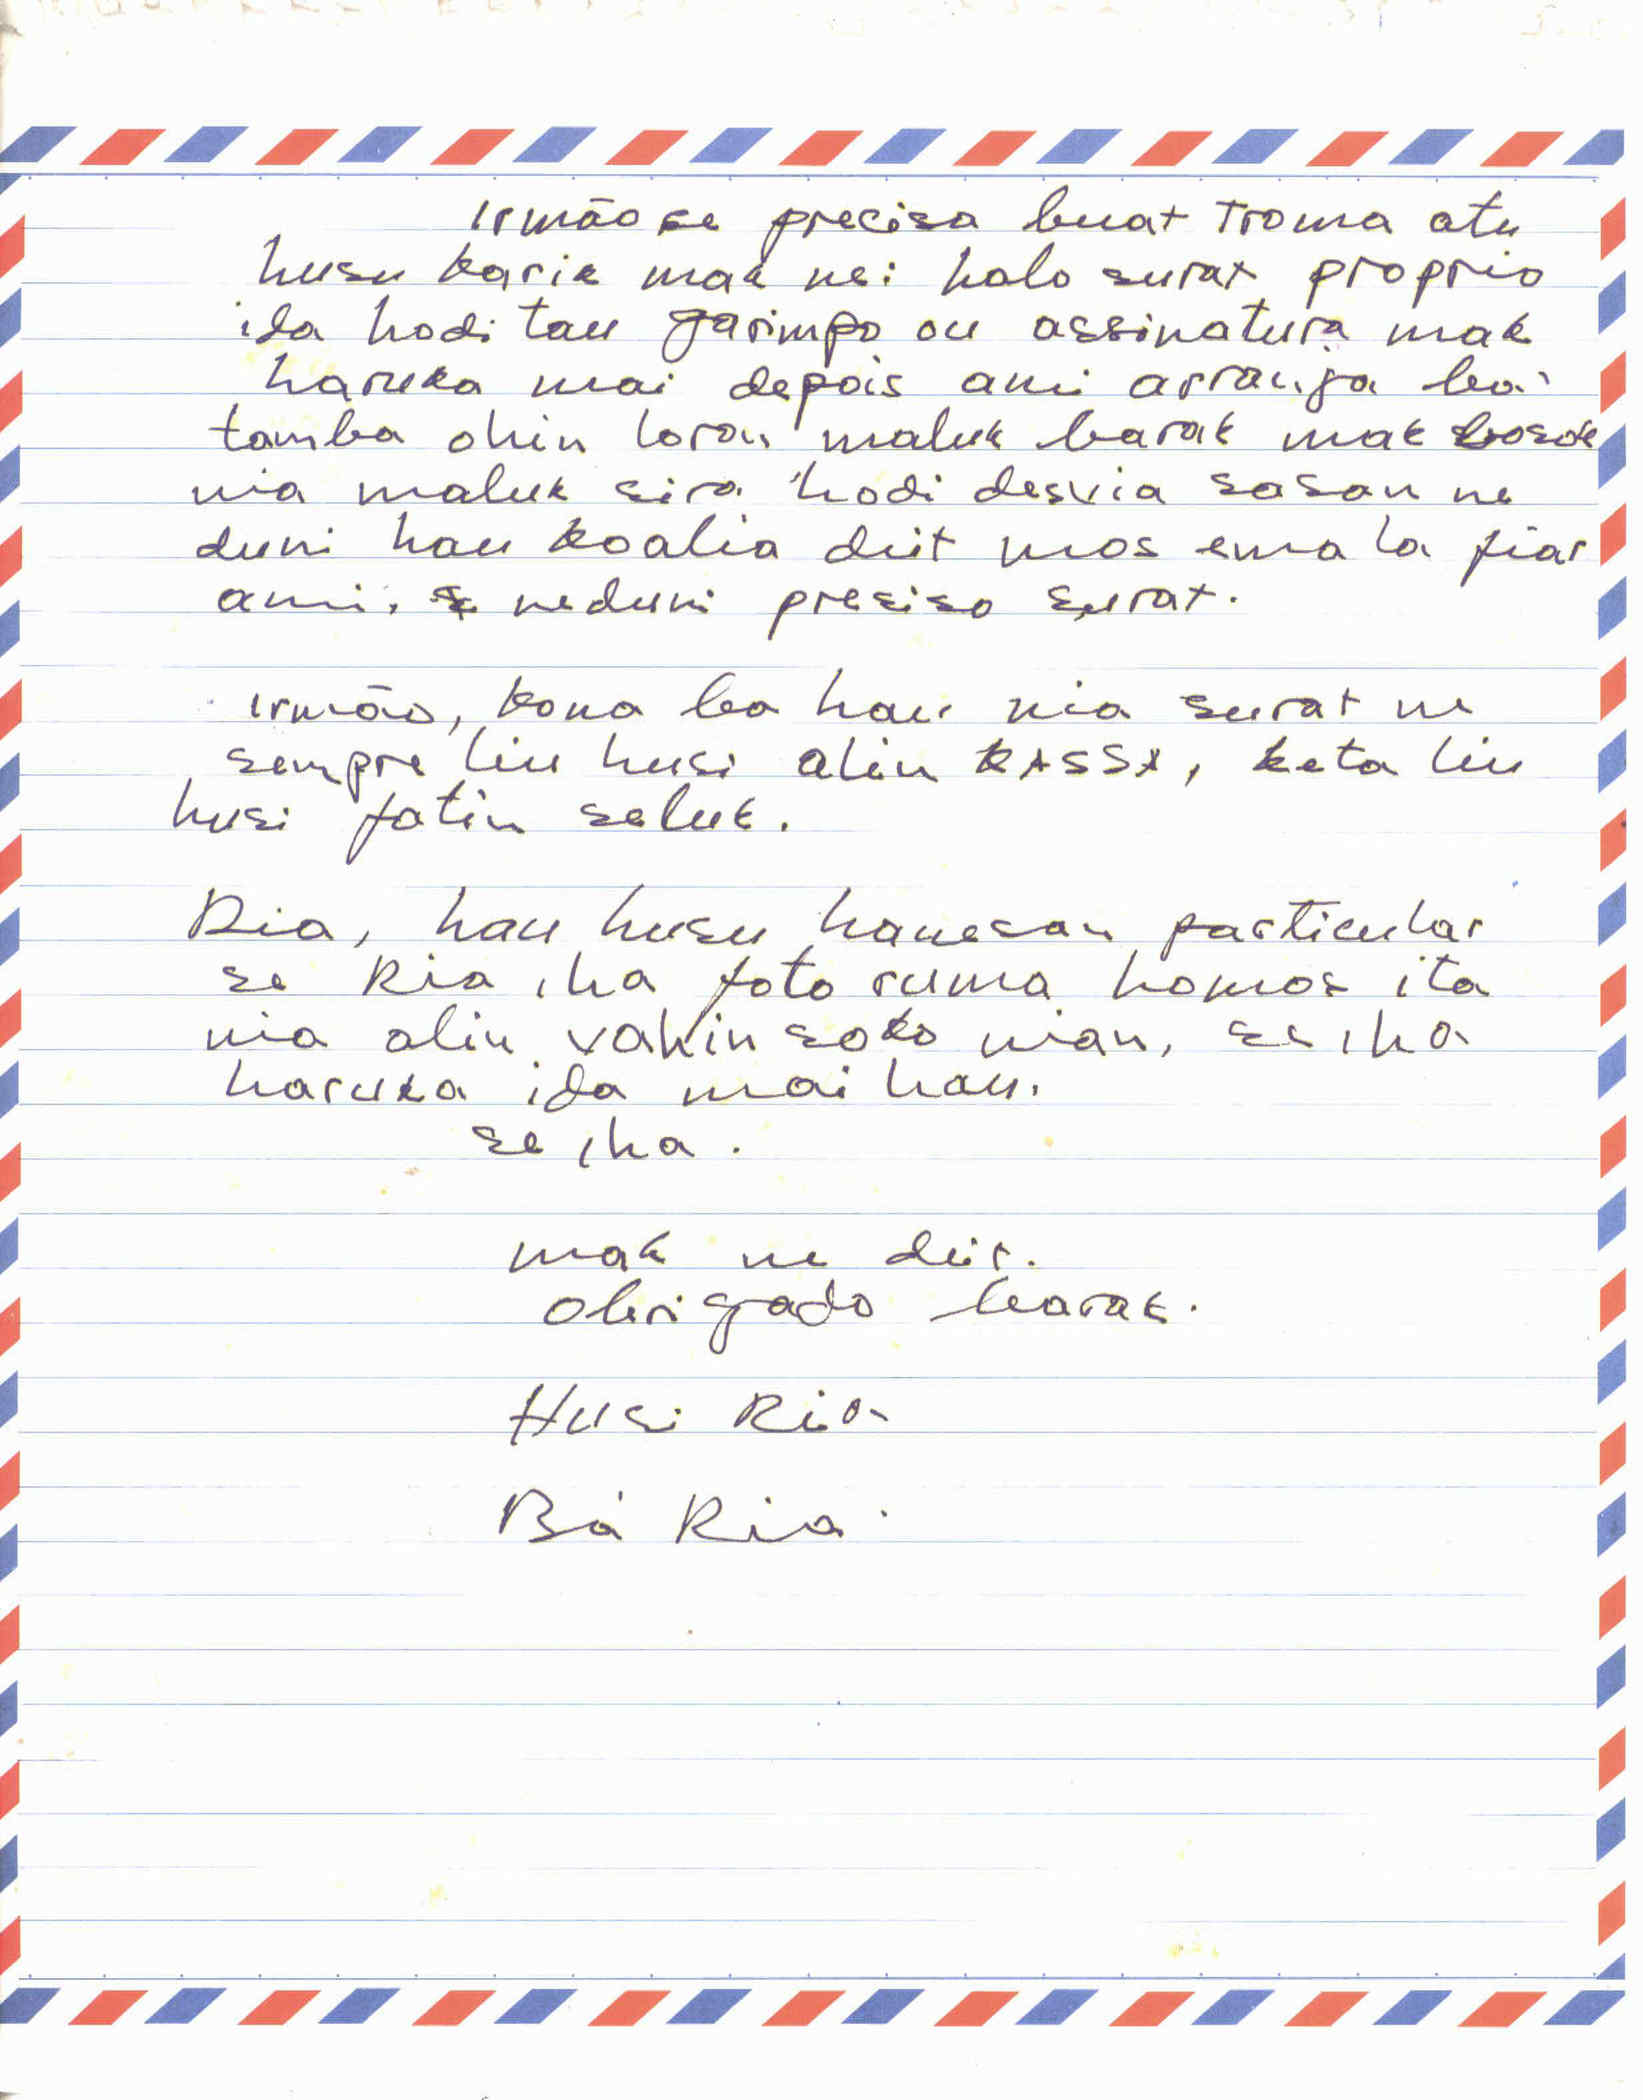 Irmão se precisa buat troma atu
husu karik mak nei halo surat proprio
ida hodi tau garimpo ou assinatura mak
haruka mai depois ami arranja ba
tamba ohin loron maluk barak mak
nia maluk sira hodi desvia sasan ne
duni hau koalia diit mos ema la fiar
ami, neduni presiso surat.
Irmão, kona ba hau nia surat ne
sempre liu husi alin KASSA, keta liu
husi fatin seluk.
Ria, hau husu hanesan particular
se Ria iha foto ruma homos ita
nia alin vahin soko nian, se iha
haruka ida mai hau.
se iha.
mak ne diit.
obrigado barak.
Husi Ria
Bá Ria.